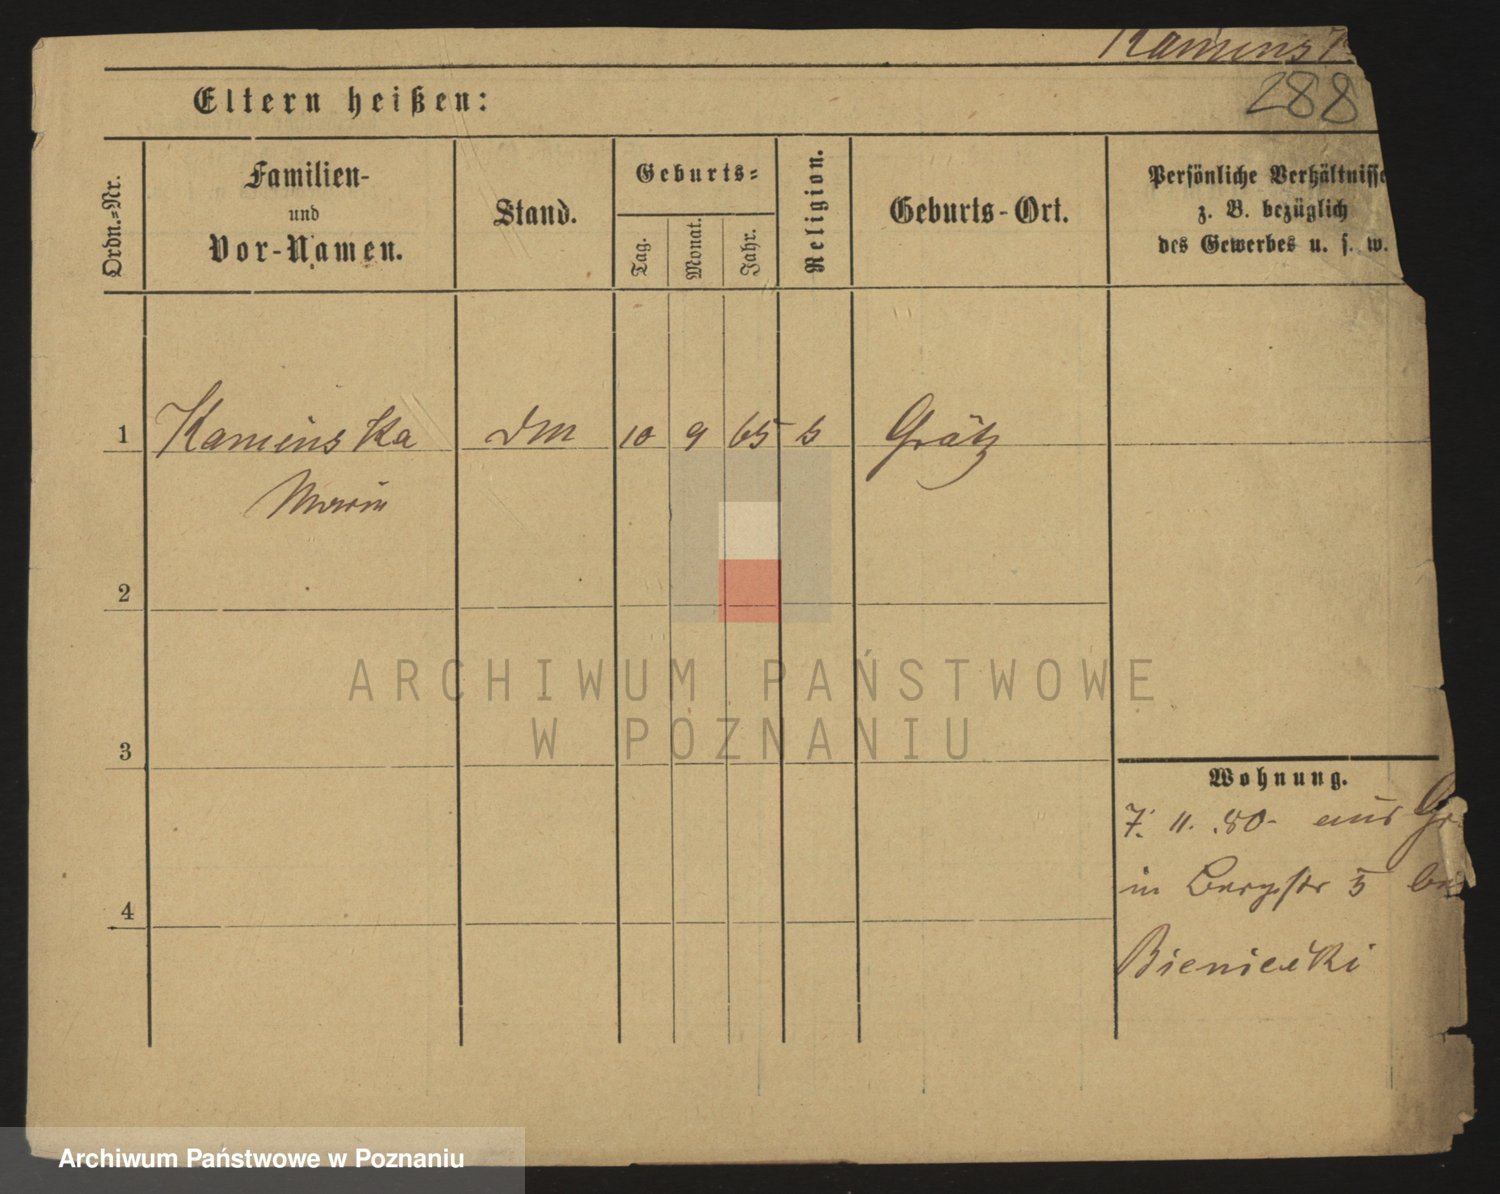 Kamensk
288
Eltern heißen:
Ordn.=Nr.
Familien-
und
Vor-Namen.
Stand.
Geburts=
Tag.
Monat.
Jahr.
Religion.
Geburts-Ort.
Persönliche Verhältnisse
z. B. bezüglich
des Gewerbes u. s. w.
1 Kamenska DM 10 9 65 k Grätz
Marie
2
3
4
Wohnung.
7. 11. 80. aus Gr
in Bergstr 5 bei
Bieniecki
ARCHIWUM PAŃSTWOWE
W POZNANIU
Archiwum Państwowe w Poznaniu